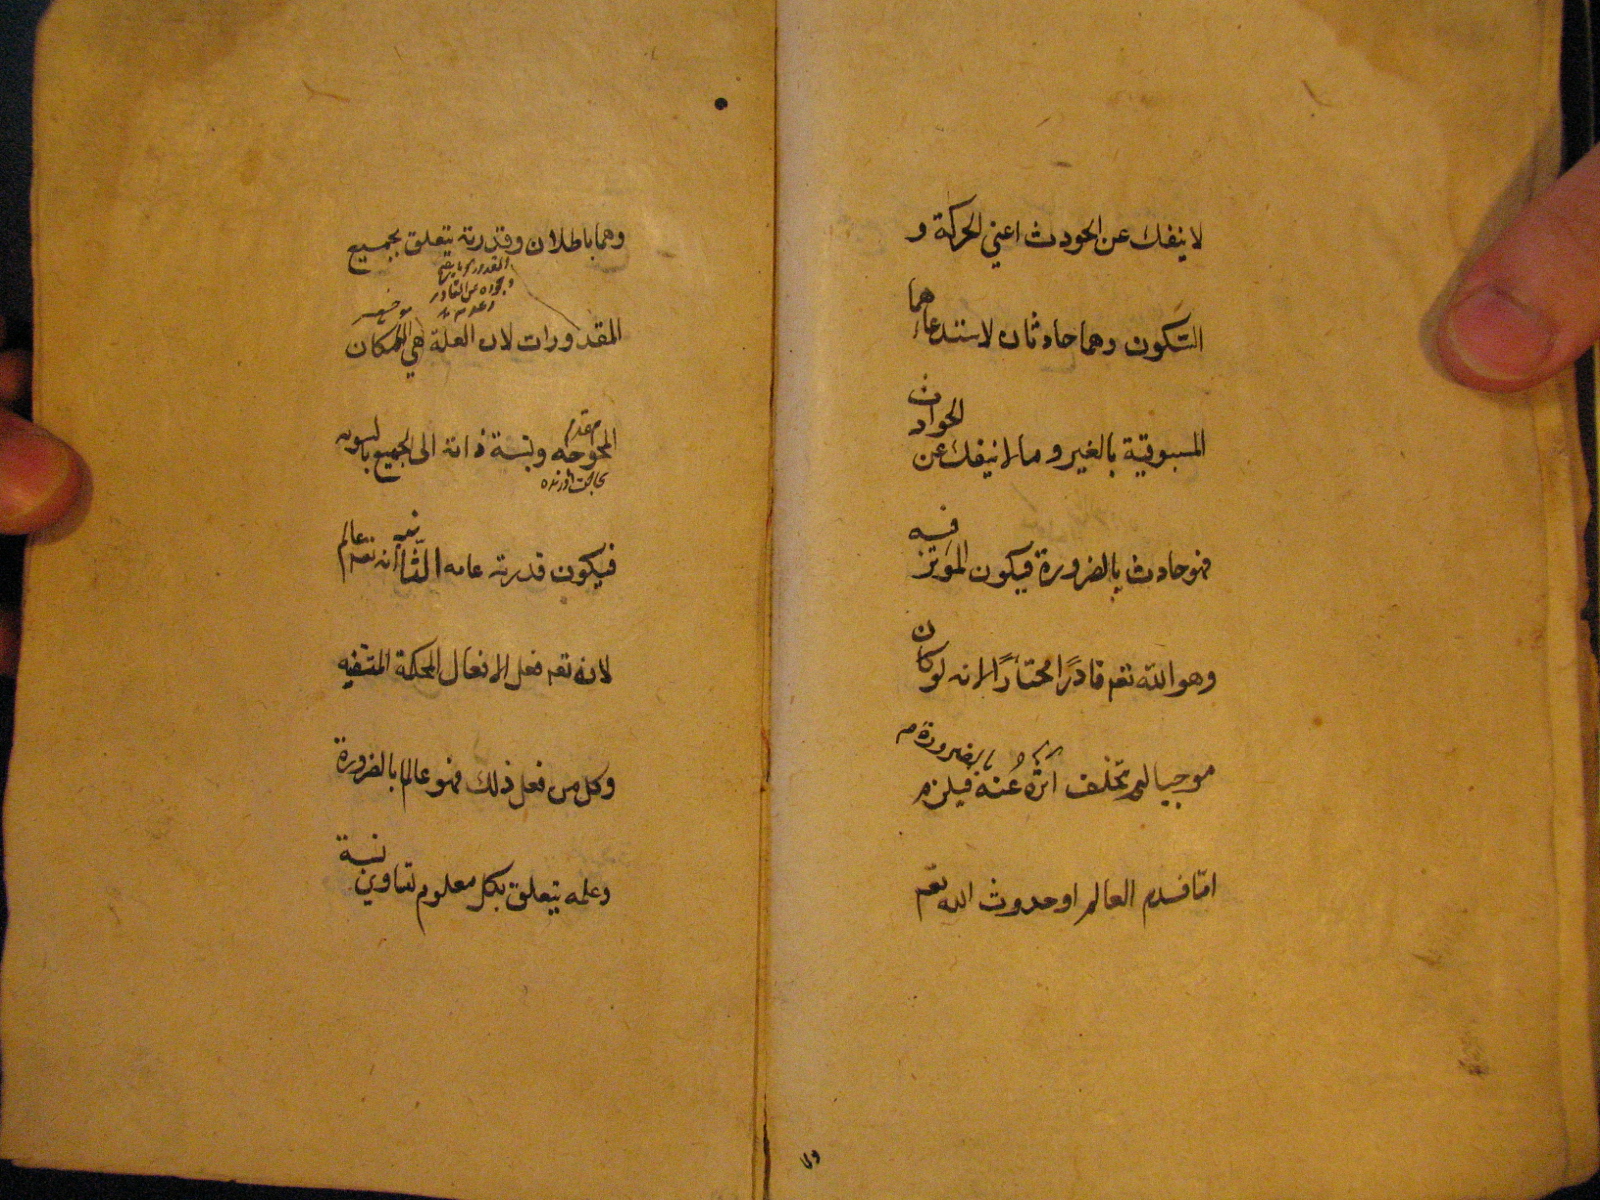 لا ينفك عن الحودث اعني الحركة و
السّكون وهما حادثان لاستدعائهما
المسبوقية بالغير وما لا ينفك عن الحوادث
فهو حادث بالضرورة فيكون المؤثر فيه
وهو الله تعم قادرًا مختارًا لانه لو كان
موجبا لم يتخلف اثره عنه بالضرورة فيلزم
امّا قدم العالم او حدوث الله تعم
ولا
وهما باطلان وقدرته يتعلق بجميع
المقدورات لان العلة هي الامكان
المحوجه ونسبة ذاته الى الجميع بالسويه
فيكون قدرته عامه الثّانيه انه تعم عالم
لانه تعم فعل الافعال المحكمة المتقنه
وكل من فعل ذلك فهو عالم بالضرورة
وعلمه يتعلق بكل معلوم لتساوي نسبة